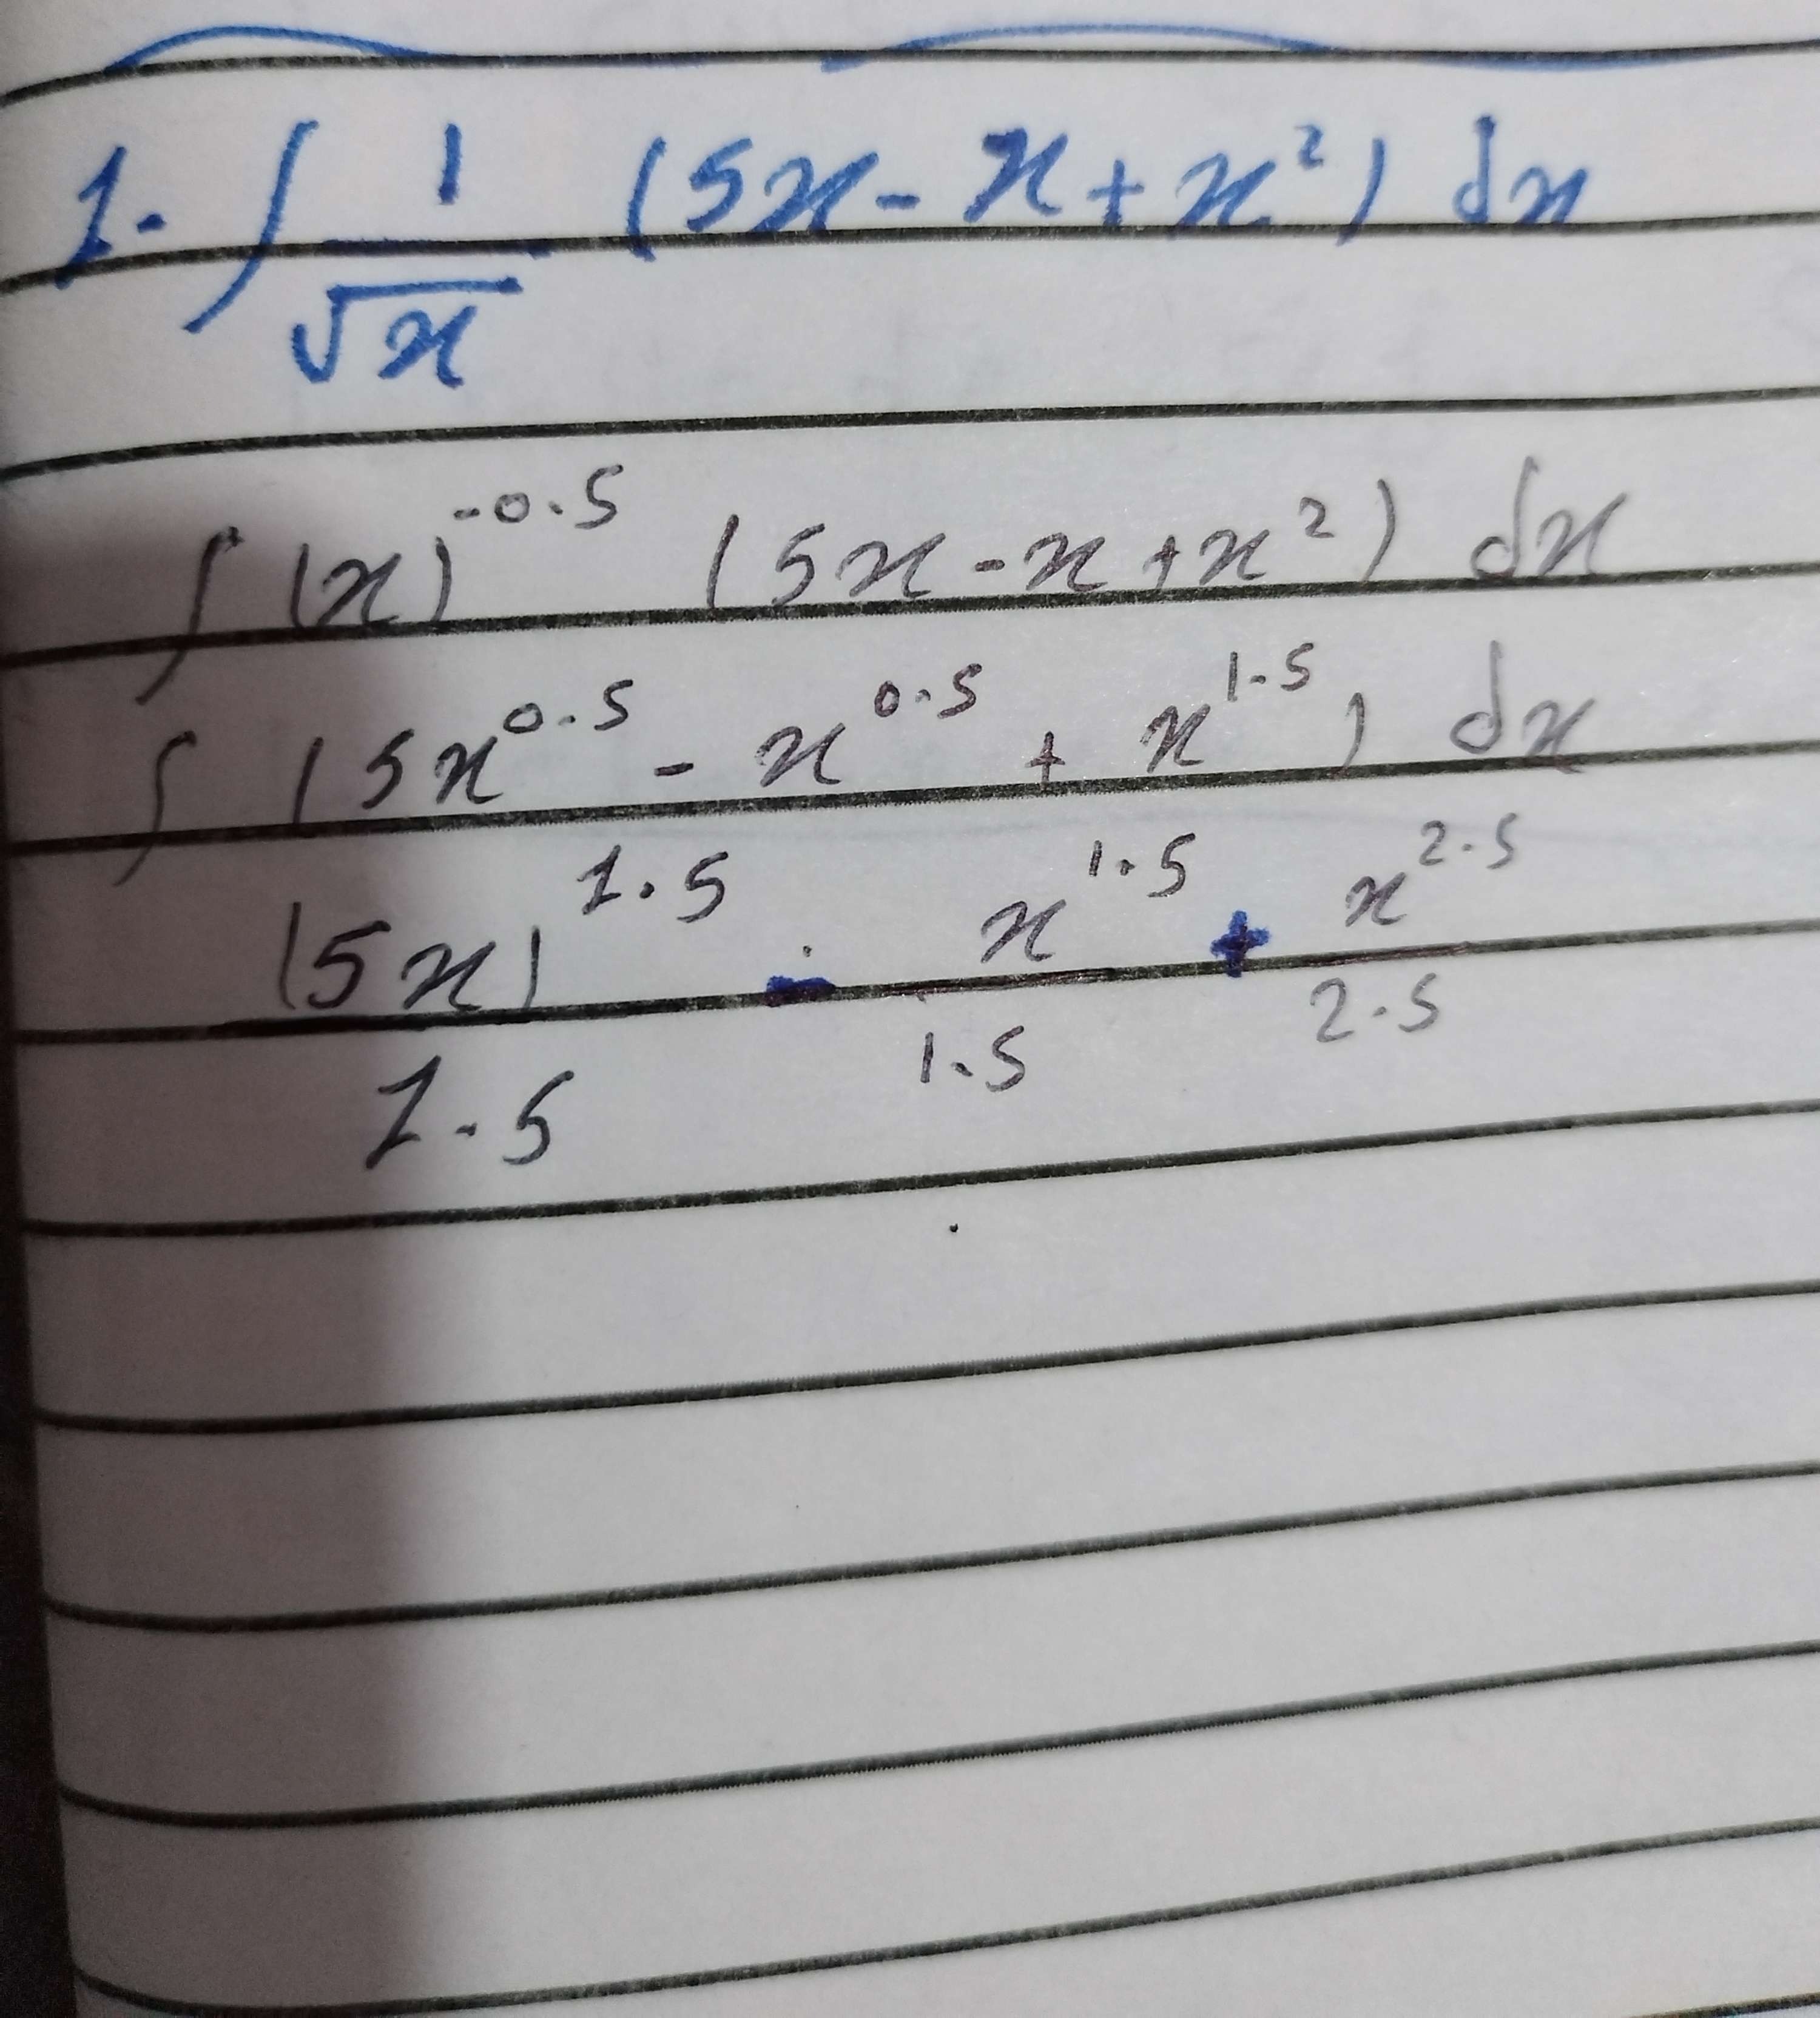 1. ∫ 1/√x (5x - x + x²) dx
∫ (x)^-0.5 (5x - x + x²) dx
∫ (5x^0.5 - x^0.5 + x^1.5) dx
(5x)^1.5/1.5 - x^1.5/1.5 + x^2.5/2.5